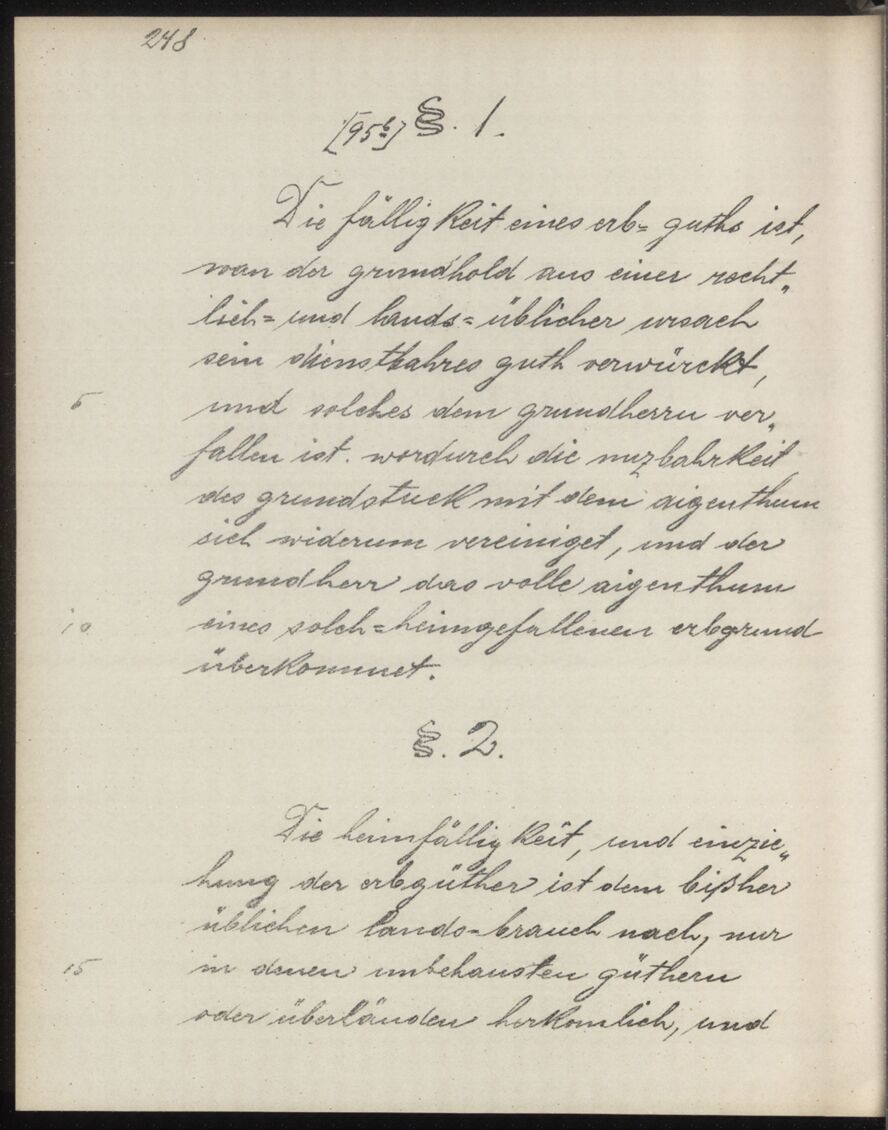 248
[95b] §. 1.
Die fälligkeit eines erb= guths ist,
wan der grundhold aus einer recht„
lich= und lands= üblicher ursach
sein dienstbahres guth verwürckt,
5 und solches dem grundherrn ver„
fallen ist. wordurch die nuzbahrkeit
des grundstuck mit dem aigenthum
sich widerum vereiniget, und der
grundherr das volle aigenthum
10 eines solch=heimgefallenen erbgrund
überkommet.
§. 2.
Die heimfälligkeit, und einzie„
hung der erbgüther ist dem bißher
üblichen lands=brauch nach, nur
15 in denen unbehausten güthern
oder überländen herkomlich, und